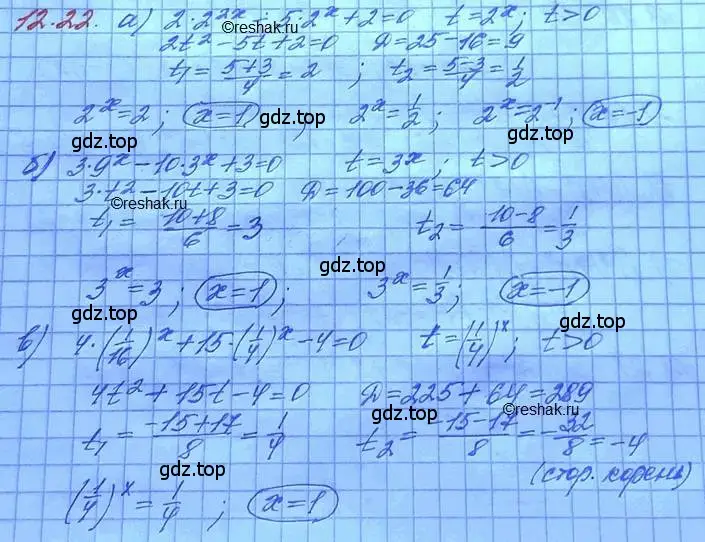 12.22. а) 2·2^{2x} ; 5·2^x+2=0 t=2^x; t>0
©reshak.ru
2t²-5t+2=0 D=25-16=9
t₁=\frac{5+3}{4}=2 ; t₂=\frac{5-3}{4}=\frac{1}{2}
2^x=2 ; x=1 ; 2^x=\frac{1}{2}; 2^x=2^{-1}; x=-1
gdz.top gdz.top gdz.top
б) 3·9^x-10·3^x+3=0 t=3^x; t>0
3·t²-10t+3=0 D=100-36=64
©reshak.ru
t₁=\frac{10+8}{6}=3 t₂=\frac{10-8}{6}=\frac{1}{3}
gdz.top gdz.top
3^x=3; x=1; 3^x=\frac{1}{3}; x=-1
gdz.top gdz.top gdz.top
в) 4·(\frac{1}{16})^x+15·(\frac{1}{4})^x-4=0 t=(\frac{1}{4})^x; t>0
4t²+15t-4=0 D=225+64=289
gdz.top ©reshak.ru
t₁=\frac{-15+17}{8}=\frac{1}{4} t₂=\frac{-15-17}{8}=-\frac{32}{8}=-4
gdz.top gdz.top
(стор. корень)
(\frac{1}{4})^x=\frac{1}{4} ; x=1
gdz.top gdz.top